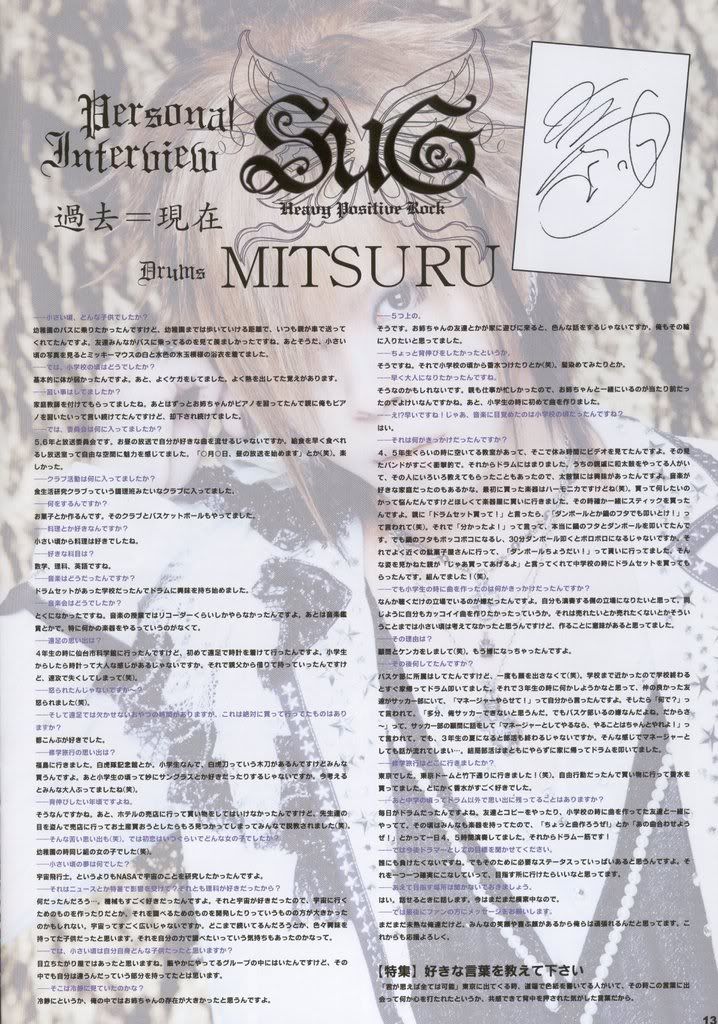 Personal
Interview
SuG
Heavy Positive Rock
過去＝現在
Drums MITSURU
──小さい頃、どんな子供でしたか？
幼稚園のバスに乗りたかったんですけど、幼稚園までは歩いていける距離で、いつも親が車で送って
くれてたんですよ。友達みんながバスに乗ってるのを見て羨ましかったですね。あとそうだ、小さい
頃の写真を見るとミッキーマウスの白と水色の水玉模様の浴衣を着てました。
──では、小学校の頃はどうでしたか？
基本的に体が弱かったんですよ。あと、よくケガをしてました。よく熱を出してた覚えがあります。
──習い事はしてましたか？
家庭教師を付けてもらってましたね。あとはずっとお姉ちゃんがピアノを習ってたんで親に俺もピア
ノを習いたいって言い続けてたんですけど、却下され続けてました。
──では、委員会は何に入ってましたか？
5,6年と放送委員です。お昼の放送で自分が好きな曲を流せるじゃないですか。給食を早く食べれ
るし放送室って自由な空間に魅力を感じてました。「○月○日、昼の放送を始めます」とか(笑)。楽
しかった。
──クラブ活動は何に入ってましたか？
食生活研究クラブっていう調理班みたいなクラブに入ってました。
──何をするんですか？
お菓子とか作るんです。そのクラブとバスケットボールもやってました。
──料理とか好きなんですか？
小さい頃から料理は好きでしたね。
──好きな科目は？
数学、理科、英語ですね。
──音楽はどうだったんですか？
ドラムセットがあった学校だったんでドラムに興味を持ち始めました。
──音楽会はどうでしたか？
とくになかったですね。音楽の授業ではリコーダーくらいしかやらなかったんですよ。あとは音楽鑑
賞とかで。特に何かの楽器をやるっていうのがなくて。
──遠足の思い出は？
4年生の時に仙台市科学館に行ったんですけど、初めて遠足で時計を着けて行ったんですよ。小学生
からしたら時計って大人な感じがあるじゃないですか。それで親父から借りて持っていったんですけ
ど、速攻で失くしてしまって(笑)。
──怒られたんじゃないですか～？
怒られました(笑)。
──そして遠足では欠かせないおやつの時間がありますが、これは絶対に買って行ってたものはあり
ますか？
都こんぶが好きでした。
──修学旅行の思い出は？
福島に行きました。白虎隊記念館とか。小学生なんで、白虎刀っていう木刀があるんですけどみんな
買うんですよ。あと小学生の頃って妙にサングラスとか好きだったりするじゃないですか。今考える
とみんな大人ぶってましたね(笑)。
──背伸びしたい年頃ですよね。
そうなんですかね。あと、ホテルの売店に行って買い物をしてはいけなかったんですけど、先生達の
目を盗んで売店に行ってお土産買おうとしたらもろ見つかってしまってみんなで説教されました(笑)。
──そんな苦い思い出も(笑)。では初恋はいつぐらいでどんな女の子でしたか？
幼稚園の時同じ組の女の子でした(笑)。
──小さい頃の夢は何でした？
宇宙飛行士。というよりもNASAで宇宙のことを研究したかったんですよ。
──それはニュースとか特番で影響を受けて？それとも理科が好きだったから？
何だったんだろう…。機械もすごく好きだったんですよ。それと宇宙が好きだったので、宇宙に行く
ためのものを作ったりだとか、それを調べるためのものを開発したりっていうものの方が大きかった
のかもしれない。宇宙ってすごく広いじゃないですか。どこまで続いてるんだろうとか、色々興味を
持ってた子供だったと思います。それを自分の力で調べたいっていう気持ちもあったのかなって。
──では、小さい頃は自分自身どんな子供だったと思いますか？
目立ちたがり屋ではあったと思いますね。賑やかにやってるグループの中にはいたんですけど、その
中でも自分は違うんだっていう部分を持ってたとは思います。
──そこは冷静に見ていたのかな？
冷静にというか、俺の中ではお姉ちゃんの存在が大きかったと思うんですよ。
──5つ上の。
そうです。お姉ちゃんの友達とかが家に遊びに来ると、色んな話をするじゃないですか。俺もその輪
に入りたいと思ってました。
──ちょっと背伸びをしたかったというか。
そうですね。それで小学校の頃から香水つけたりとか(笑)。髪染めてみたりとか。
──早く大人になりたかったんですね。
そうなのかもしれないです。親も仕事が忙しかったので、お姉ちゃんと一緒にいるのが当たり前だっ
たのでよけいなんですかね。あと、小学生の時に初めて曲を作りました。
──え!?早いですね！じゃあ、音楽に目覚めたのは小学校の頃だったんですね？
はい。
──それは何がきっかけだったんですか？
4、5年生くらいの時に空いてる教室があって、そこで休み時間にビデオを見てたんですよ。その見
たバンドがすごく衝撃的で、それからドラムにはまりました。うちの親戚に和太鼓をやってる人がい
て、その人にいろいろ教えてもらったこともあったので、太鼓類には興味があったんですよ。音楽が
好きな家庭だったのもあるかな。最初に買った楽器はハーモニカですけどね(笑)。買って何したいの
かって悩んだんですけどほしくて楽器屋に買いに行きました。その時確か一緒にスティックを買った
んですよ。親に「ドラムセット買って！」と言ったら、「ダンボールとか鍋のフタでも叩いとけ！」っ
て言われて(笑)。それで「分かったよ！」って言って、本当に鍋のフタとダンボールを叩いてたん
です。でも鍋のフタもボッコボコになるし、30分ダンボール叩くとボロボロになるじゃないですか。そ
れでよく近くの駄菓子屋さんに行って、「ダンボールちょうだい！」って貰いに行ってました。そん
な姿を見かねた親が「じゃあ買ってあげるよ」と言ってくれて中学校の時にドラムセットを買っても
らったんです。組んでました！(笑)。
──でも小学生の時に曲を作ったのは何がきっかけだったんですか？
なんか聴くだけの立場でいるのが嫌だったんですよ。自分も演奏する側の立場になりたいと思って、同
じように自分もカッコイイ曲を作りたかったっていうか。それは売れたいとか売れたくないとかそうい
うことまでは小さい頃は考えてなかったと思うんですけど、作ることに意味があると思ってました。
──その理由は？
顧問とケンカをしまして(笑)。もう嫌になっちゃったんですよ。
──その後何してたんですか？
バスケ部に所属はしてたんですけど、一度も顔を出さなくて(笑)。学校まで近かったので学校終わる
とすぐ家帰ってドラム叩いてました。それで3年生の時に何かしようかなと思って、仲の良かった友
達がサッカー部にいて、「マネージャーやらせて！」って自分から言ったんですよ。そしたら「何で？」っ
て言われて、「多分、俺サッカーできないと思うんだ、でもバスケ部いるの嫌なんだよね。だからさ
～」って、サッカー部の顧問に話をして「マネージャーとしてやるなら、やることはちゃんとやれよ！」っ
て言われて。でも、3年生の夏になると部活も終わるじゃないですか。そんな感じでマネージャーと
しても話が流れてしまい…。結局部活はまともにやらずに家に帰ってドラムを叩いてました。
──修学旅行はどこに行きましたか？
東京でした。東京ドームと竹下通りに行きました！(笑)。自由行動だったんで買い物に行って香水を
買ってました。とにかく香水がすごく好きでした。
──あと中学の頃ってドラム以外で思い出に残ってることはありますか？
毎日がドラムだったんですよね。友達とコピーをやったり、小学校の時に曲を作ってた友達と一緒に
やってて、その頃はみんなも楽器を持ってたので、「ちょっと曲作ろうぜ」とか「あの曲合わせようぜ！」
とかって一日4、5時間演奏してました。それからドラム一筋です！
──では今後ドラマーとしての目標を聞かせてください。
誰にも負けたくないですね。でもそのために必要なステータスっていっぱいあると思うんですよ。そ
れを一つ一つ確実にこなしていって、目指す所に行けたらいいなと思ってます。
──あえて目指す場所は聞かないでおきましょう。
はい。話せるときに話します。今はまだまだ模索中なので。
──では最後にファンの方にメッセージをお願いします。
まだまだ未熟な俺達だけど、みんなの笑顔や喜ぶ顔があるから俺らは頑張れるんだと思ってます。こ
れからも応援よろしく。
【特集】好きな言葉を教えて下さい
「君が思えば全ては可能」東京に出てくる時、道端で色紙を書いてる人がいて、その時この言葉に出
会って何か心を打たれたというか、共感できて背中を押された気がした言葉だから。
13